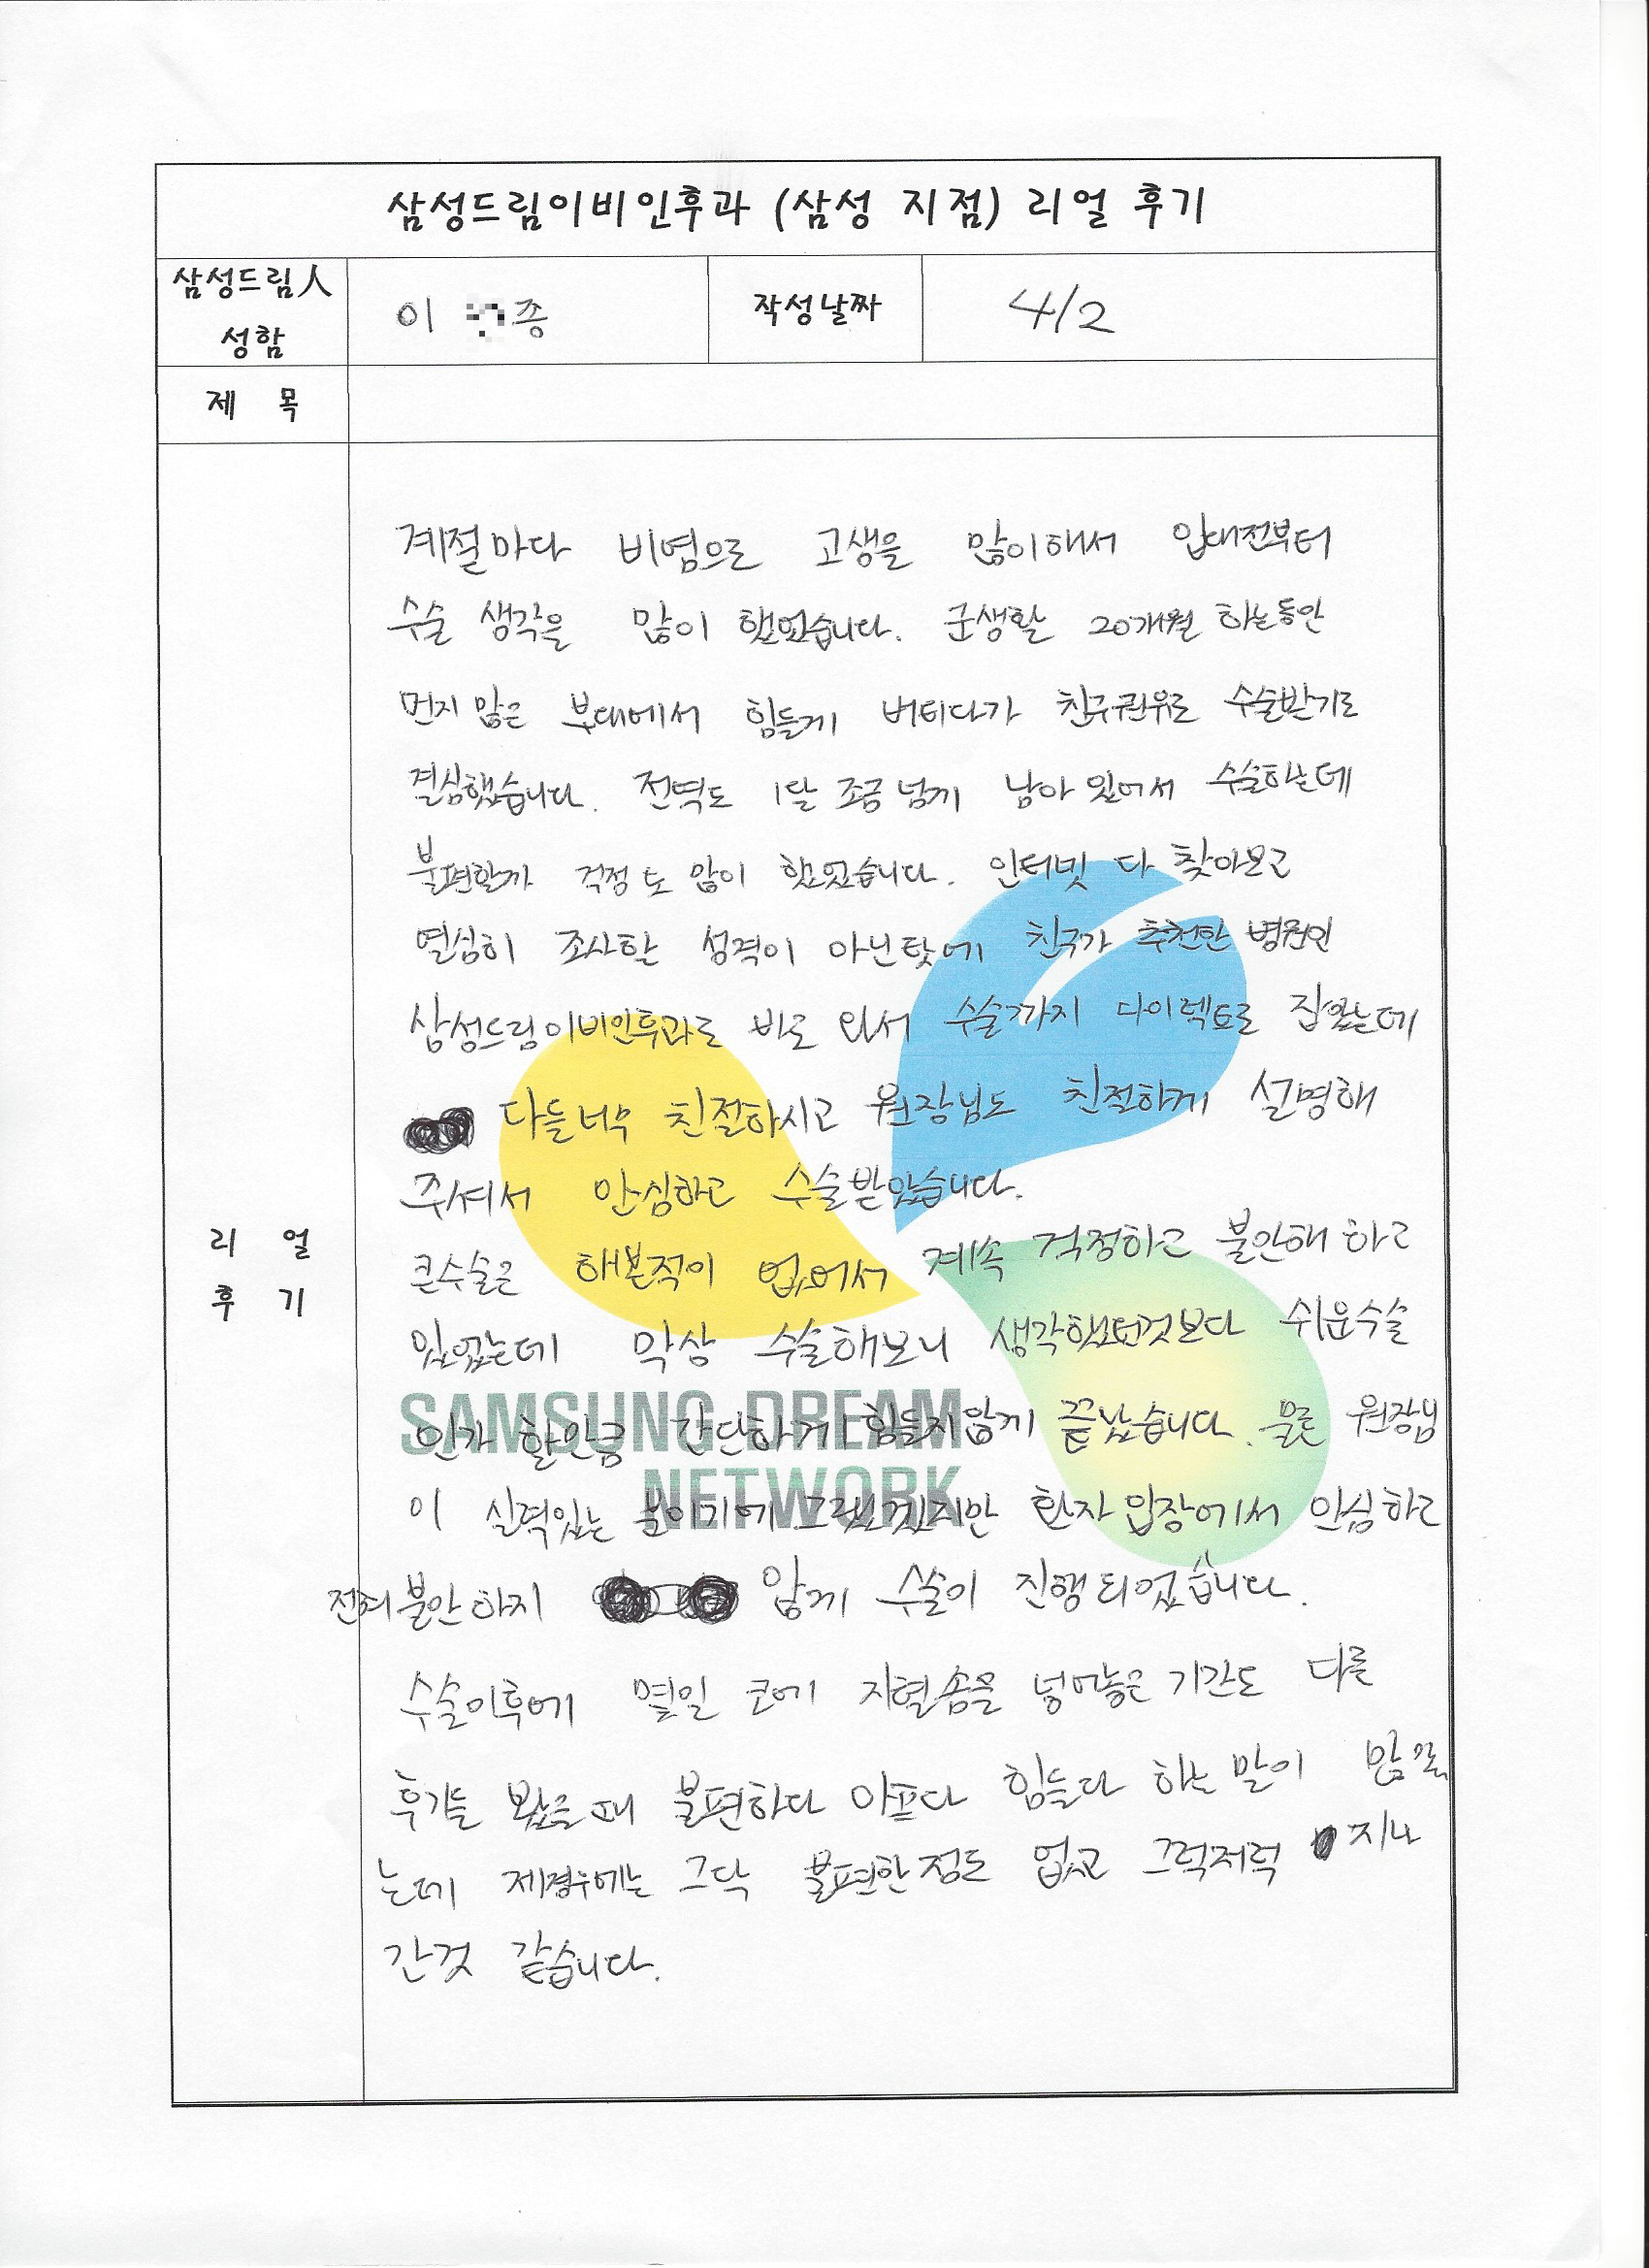 삼성드림이비인후과 (삼성 지점) 리얼 후기
삼성드림人
성함
이 종
작성날짜
4/2
제 목
리 얼
후 기
계절마다 비염으로 고생을 많이해서 입대전부터
수술 생각을 많이 했었습니다. 군생활 20개월 하는동안
먼지 많은 부대에서 힘들게 버티다가 친구권유로 수술받기로
결심했습니다. 전역도 1달 조금 넘게 남아 있어서 수술하는데
불편할까 걱정도 많이 했었습니다. 인터넷 다 찾아보고
열심히 조사할 성격이 아닌탓에 친구가 추천한 병원인
삼성드림이비인후과로 바로 와서 수술까지 다이렉트로 잡았는데
다들너무 친절하시고 원장님도 친절하게 설명해
주셔서 안심하고 수술받았습니다.
큰수술은 해본적이 없어서 계속 걱정하고 불안해 하고
있었는데 막상 수술해보니 생각했던것보다 쉬운수술
인가 할만큼 간단하게 힘들지않게 끝났습니다. 물론 원장님
이 실력있는 분이기에 그랬겠지만 환자 입장에서 안심하고
전혀 불안하지 않게 수술이 진행되었습니다.
수술이후에 몇일 코에 지혈솜을 넣어놓은 기간도 다른
후기들 봤을때 불편하다 아프다 힘들다 하는 말이 많았
는데 제경우에는 그닥 불편한정도 없고 그럭저럭 지나
간것 같습니다.
SAMSUNG DREAM
NETWORK